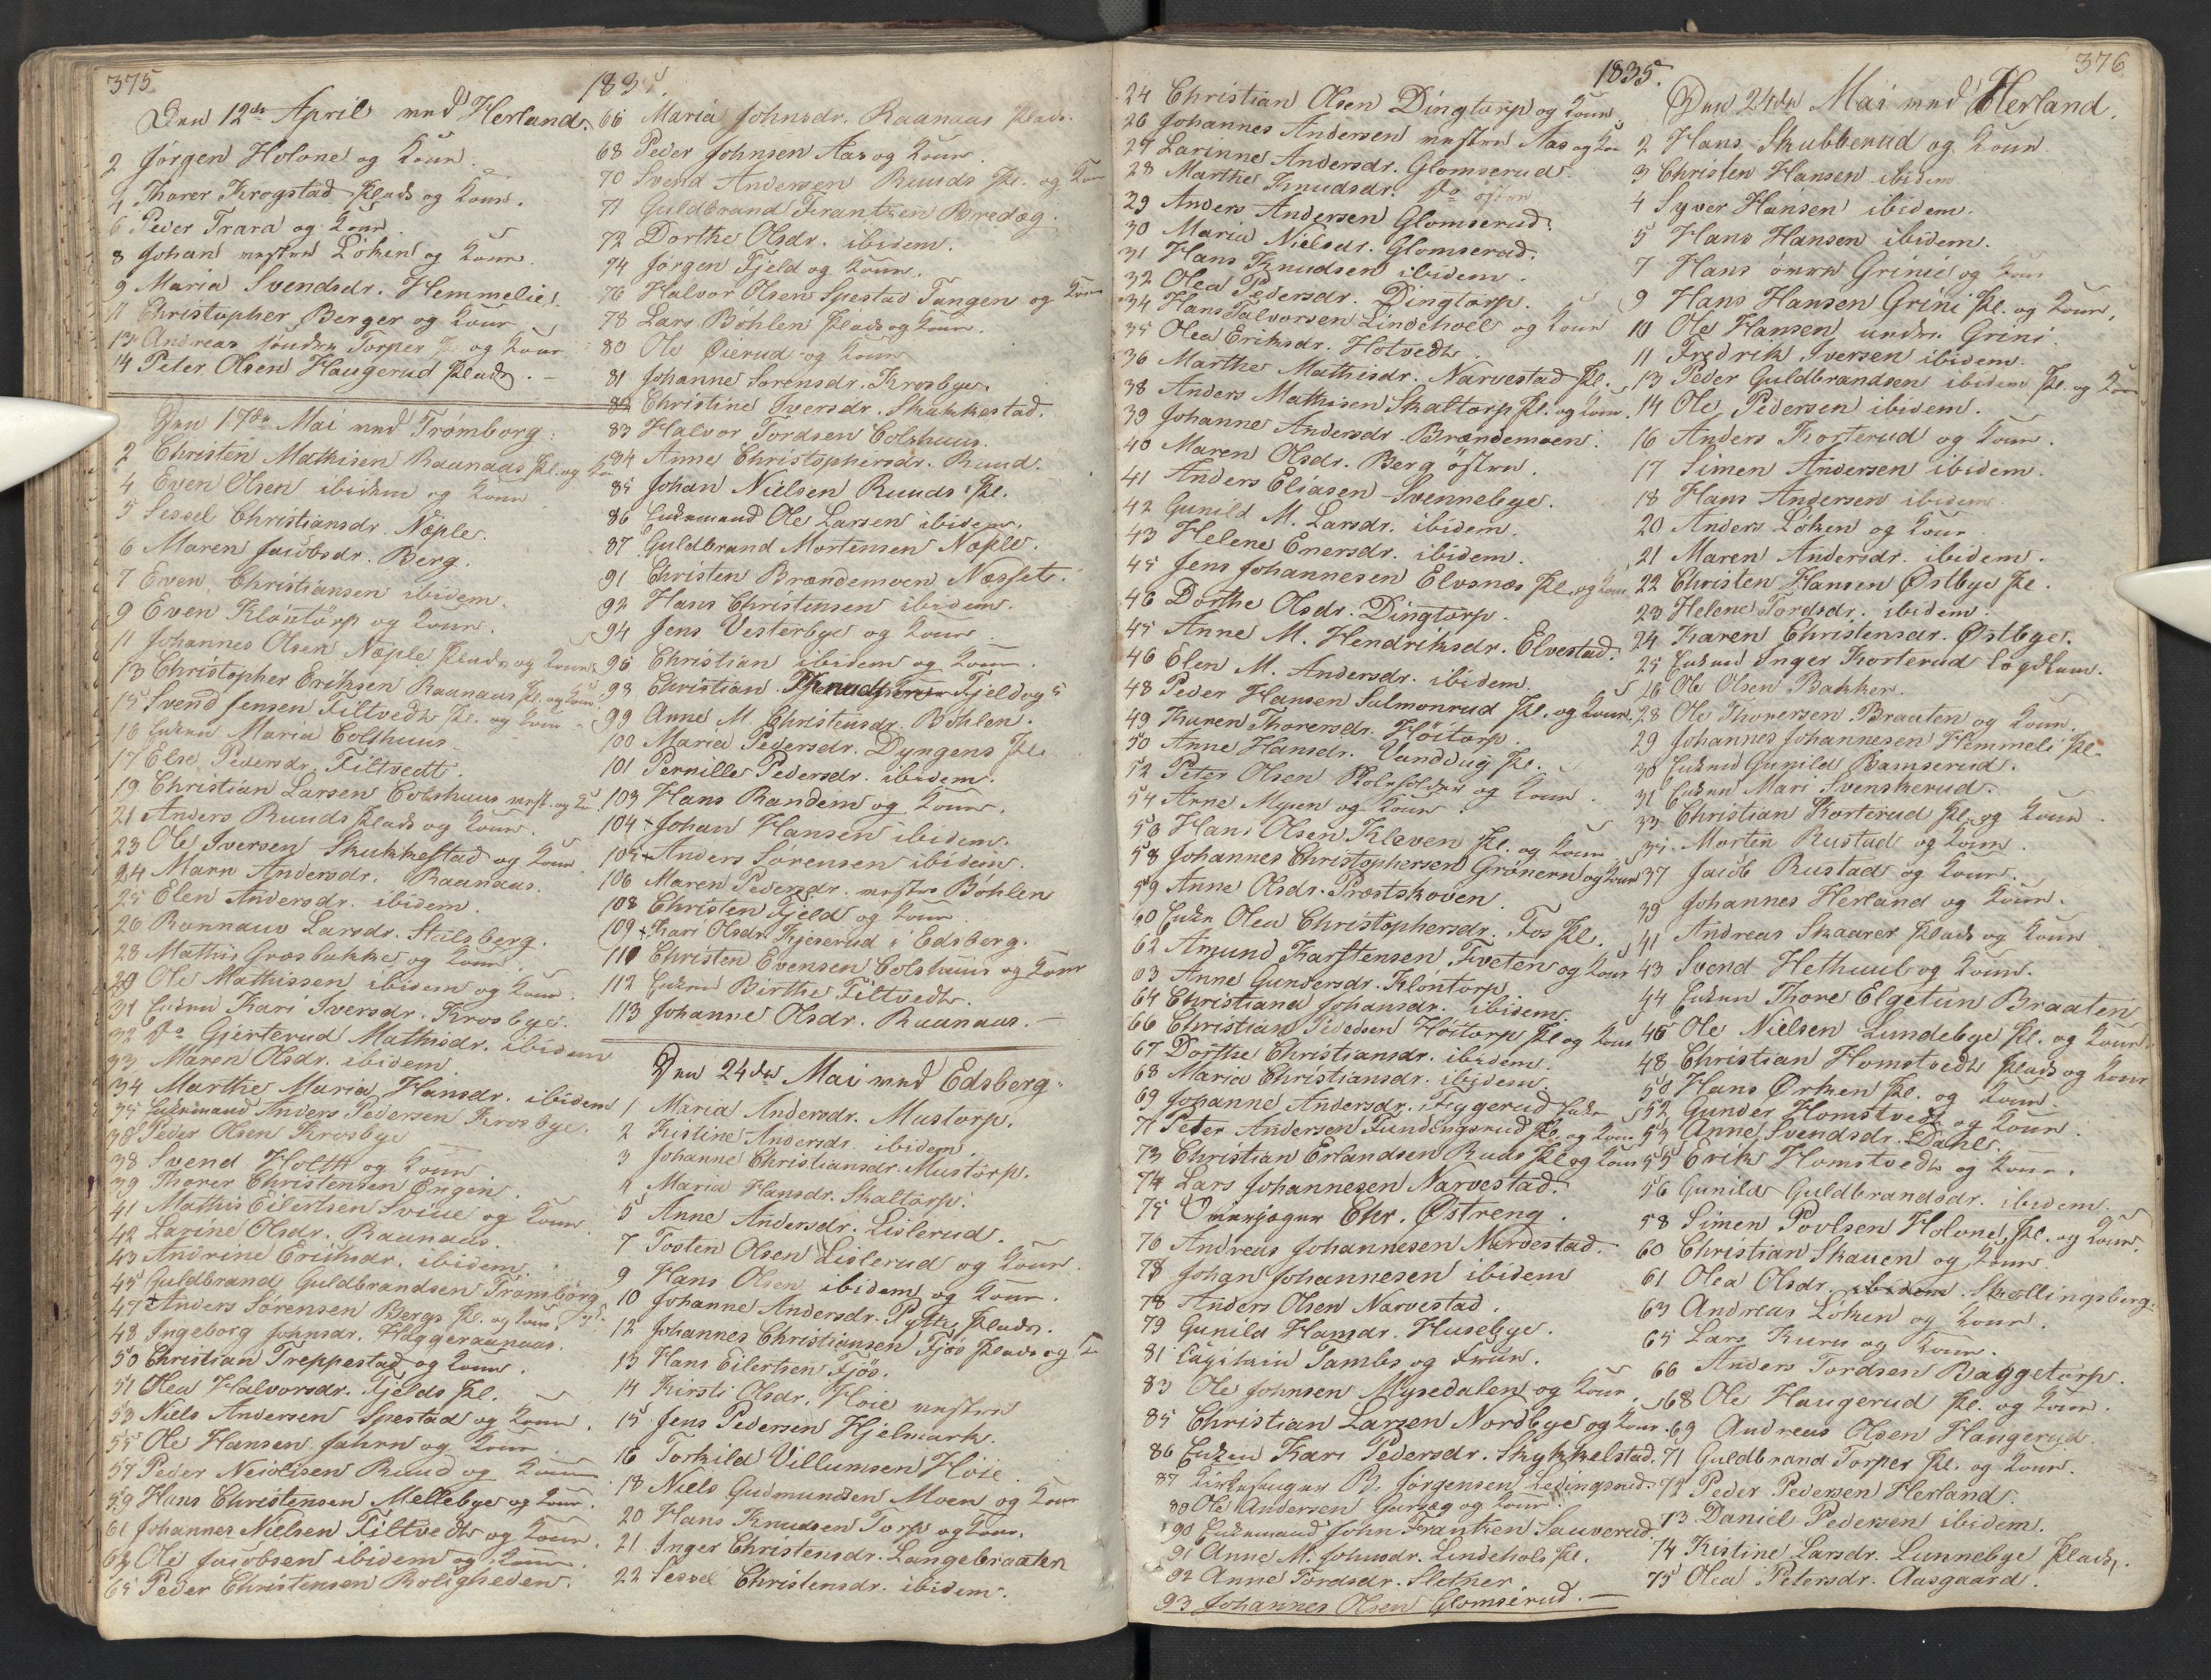 375
1835.
Den 12te April ved Herland.
2 Jørgen Holone og Kone.
4 Thorer Krogstad Plads og Kone.
6 Peder Trara og Kone.
8 Johan vestre Löken og Kone.
9 Maria Svendsdr. Hemmelie.
11 Christopher Berger og Kone
13 Andreas söndre Torper og Kone
14 Peter Olsen Haugerud Plads. —
Den 17de Mai ved Trömborg.
2 Christen Mathisen Raanaas Pl. og Ko
4 Even Olsen ibidem og Kone
5 Sessel Christiansdr. Næple.
6 Maren Jacobsdr. Berg.
7 Even Christiansen ibidem.
9 Even Klöntorp og Kone.
11 Johannes Olsen Næple Plads og Kone.
13 Christopher Eriksen Raanaas Pl. og Kone.
15 Svend Jensen Tiltvedt Pl. og Kone
16 Enken Maria Colshuus
17 Else Pedersdr. Tiltvedt.
19 Christian Larsen Colshuus vest. og Ko
21 Anders Ruuds Plads og Kone.
23 Ole Iversen Skukkestad og Kone
24 Maren Andersdr. Raanaas.
25 Elen Andersdr. ibidem.
26 Rannauv Larsdr. Stulsberg.
28 Mathis Grosbakke og Kone
30 Ole Mathissen ibidem og Kone.
31 Enken Kari Iversdr. Krosbye.
32 do Gjerterud Mathisdr. ibidem
33 Maren Olsdr. ibidem
34 Marthe Maria Hansdr. ibidem
35 Enkemand Anders Pedersen Krosbye.
36 Peder Olsen Krosbye
38 Svend Holth og Kone
39 Thorer Christensen Engen.
41 Mathis Eilertsen Sviue og Kone
42 Larine Olsdr. Raanaas.
43 Andrine Eriksdr. ibidem.
45 Guldbrand Guldbrandsen Trömborg
47 + Anders Sörensen Bergs Pl. og Kone
48 Ingeborg Johnsdr. Haggeraanaas.
50 Christian Treppestad og Kone.
51 Olea Halvorsdr. Fjelds Pl.
53 Niels Andersen Spestad og Kone.
55 Ole Hansen Jahren og Kone
57 Peder Neiolisen Ruud og Kone
59 Hans Christensen Mellebye og Kone.
61 Johannes Nielsen Tiltvedt og Kone.
63 Ole Jacobsen ibidem og Kone.
65 Peder Christensen Roligheden.
66 Maria Johnsdr. Raanaas Plads.
68 Peder Johnsen Aas og Kone.
70 Svend Andersen Ruuds Pl. og Kone
71 Guldbrand Frantzen Bredæg.
72 Dorthe Olsdr. ibidem.
74 Jörgen Fjeld og Kone.
76 Halvor Olsen Spestad Tangen og Kone
78 Lars Böhlen Plads og Kone.
80 Ole Øierud og Kone
81 Johanne Sorensdr. Krosbye.
82 Christine Iversdr. Skakkestad.
83 Halvor Tordsen Colshuus.
84 Anne Christophersdr. Ruud.
85 Johan Nielsen Ruuds Pl.
86 Enkemand Ole Larsen ibidem.
87 Guldbrand Mortensen Næple.
91 Christen Brændemoen Næsset.
92 Hans Christensen ibidem.
94 Jens Vesterbye og Kone.
96 Christian ibidem og Kone.
98 Christian Fjeld og
99 Anne M. Christensdr. Böhlen.
100 Maria Pedersdr. Dyngens Pl.
101 Pernille Pedersdr. ibidem.
103 Hans Randem og Kone.
104 + Johan Hansen ibidem.
105 + Anders Sörensen ibidem.
106 Maren Pedersdr. vestre Böhlen
108 Christen Fjeld og Kone
109 + Kari Olsdr. Kjeserud i Edsberg.
111 Christen Evensen Colshuus og Kone
112 Enken Birthe Tiltvedt.
113 Johanne Olsdr. Raanaas. —
Den 24de Mai ved Edsberg.
1 Maria Andersdr. Mustorp.
2 Kistine Andersdr. ibidem.
3 Johanne Christiansdr. Mustorp.
4 Maria Hansdr. Skaltorp.
5 Anne Andersdr. Lislerud.
7 Tosten Olsen Lislerud og Kone.
9 Hans Olsen ibidem og Kone.
10 Johanne Andersdr. Pytte Plads.
12 Johannes Christiansen Fjös Plads og K
13 Hans Eilertsen Fjös.
14 Kirsti Olsdr. Höie vestre
15 Jens Pedersen Hjelmark.
16 Torkild Villumsen Höie
18 Niels Gudmundsen Moen og Kone
20 Hans Knudsen Torp og Kone.
21 Inger Christensdr. Langebraaten
22 Sessel Christensdr. ibidem.
1835.
376
24 Christian Olsen Dingtorp og Kone
26 Johannes Andersen vestre Aas og Ko
27 Larinne Andersdr. Glomserud.
28 Marthe Knudsdr. do östre
29 Anders Andersen Glomserud.
30 Maria Nielsdr. Glomserud.
31 Hans Knudsen ibidem.
32 Olea Pedersdr. Dingtorp.
34 Hans Halvorsen Lindehoel og Kone
35 Olea Eriksdr. Hotvedt.
36 Marthe Mathisdr. Narvestad Pl.
38 Anders Mathisen Skaltorp Pl. og Kone.
39 Johanne Andersdr. Brændemoen.
40 Maren Olsdr. Berg östre.
41 Anders Eliasen Svennebye.
42 Gunild M. Larsdr. ibidem.
43 Helene Enersdr. ibidem.
45 Jens Johannesen Elvsnæs Pl. og Kone
46 Dorthe Olsdr. Dingtorp.
45 Anne M. Hendriksdr. Elvestad.
46 Elen M. Andersdr. ibidem.
48 Peder Hansen Salmonrud Pl. og Kone.
49 Karen Thorersdr. Höitorp.
50 Anne Hansdr. Vanddug Pl.
52 Peter Olsen og Kone
54 Arne Mysen og Kone.
56 Hans Olsen Kleven Pl. og Kone
58 Johannes Christophersen Grönern og Kone
59 Anne Olsdr. Præstskoven.
60 Enke Olea Christophersdr. Fos Pl.
62 Amund Karstensen Tveten og Kone
63 Anne Gundersdr. Klöntorp
64 Christiane Johansdr. ibidem.
66 Christian Pedersen Höitorp Pl. og Kone
67 Dorthe Christiansdr. ibidem.
68 Maria Christiansdr. ibidem.
69 Johanne Andersdr. Frygerud Enke
71 Peter Andersen Tundengsrud Pl. og Kone
73 Christian Erlandsen Ruds Pl. og Kone
74 Lars Johannesen Narvestad.
75 Chr. Østreng.
76 Andreas Johannesen Narvestad.
78 Johan Johannesen ibidem
78 Anders Olsen Narvestad.
79 Gunild Hansdr. Husebye.
81 Capitain Tambs og Frue.
83 Ole Johnsen Mysedalen og Kone
85 Christian Larsen Nordbye og Kone.
86 Enken Kari Pedersdr. Skykkelstad.
87 Kirkesanger B. Jørgensen Ledingsrud.
88 Ole Andersen og Kone.
90 Enkemand John Frantzen Sauverud.
91 Anne M. Johnsdr. Lindehols Pl.
92 Anne Tordsdr. Sletner.
93 Johannes Olsen Glomserud. —
Den 24de Mai ved Herland.
2 Hans Skubberud og Kone
3 Christen Hansen ibidem
4 Syver Hansen ibidem.
5 Hans Hansen ibidem.
7 Hans övre Grini og Kone
9 Hans Hansen Grini Pl. og Kone.
10 Ole Hansen nedre Grini.
11 Fredrik Iversen ibidem.
13 Peder Guldbrandsen ibidem Pl. og Kone
14 Ole Pedersen ibidem.
16 Anders Korterud og Kone.
17 Simen Andersen ibidem.
18 Hans Andersen ibidem
20 Anders Löken og Kone
21 Maren Andersdr. ibidem.
22 Christen Hansen Østbye Pl.
23 Helene Tordsdr. ibidem.
24 Karen Christensdr. Østbye.
25 Enken Inger Korterud Lægdlem.
26 Ole Olsen Bakker.
28 Ole Thorersen Braaten og Kone.
29 Johannes Johannesen Hemmeli Pl.
30 Enken Gunild Bamserud.
31 Enken Mari Svenskerud.
33 Christian Korterud Pl. og Kone
35 Morten Rustad og Kone.
37 Jacob Rustad og Kone.
39 Johannes Herland og Kone.
41 Andreas Skaarer Plads og Kone
43 Svend Hethuul og Kone.
44 Enken Thore Elgetun Braaten
46 Ole Nielsen Lundebye Pl. og Kone
48 Christian Homstvedt Plads og Kone
50 Hans Ørken Pl. og Kone
52 Gunder Homstvedt og Kone
53 Anne Svendsdr. Dahle.
55 Erik Homstvedt og Kone.
56 Gunild Guldbrandsdr. ibidem.
58 Simen Povlsen Holone Pl. og Kone.
60 Christian Skauen og Kone
61 Olea Olsdr. ibidem Skollingsberg.
63 Andreas Löken og Kone.
65 Lars Kuru og Kone.
66 Anders Tordsen Baggetorp.
68 Ole Haugerud Pl. og Kone.
69 Andreas Olsen Haugerud
71 Guldbrand Torper Pl. og Kone.
72 Peder Pedersen Herland.
73 Daniel Pedersen ibidem.
74 Kistine Larsdr. Lunnebye Plads.
75 Olea Petersdr. Aasgaard.